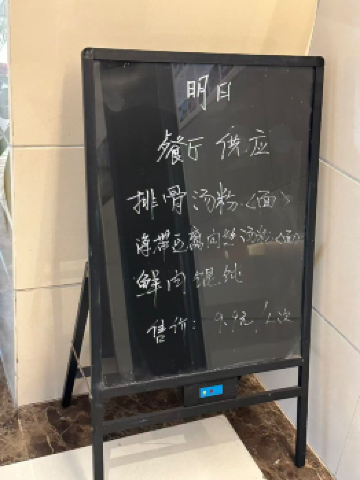 明日
餐厅供应
排骨汤粉<面>
海带豆腐肉丝汤粉<面>
鲜肉馄饨
售价：9.9元/人次